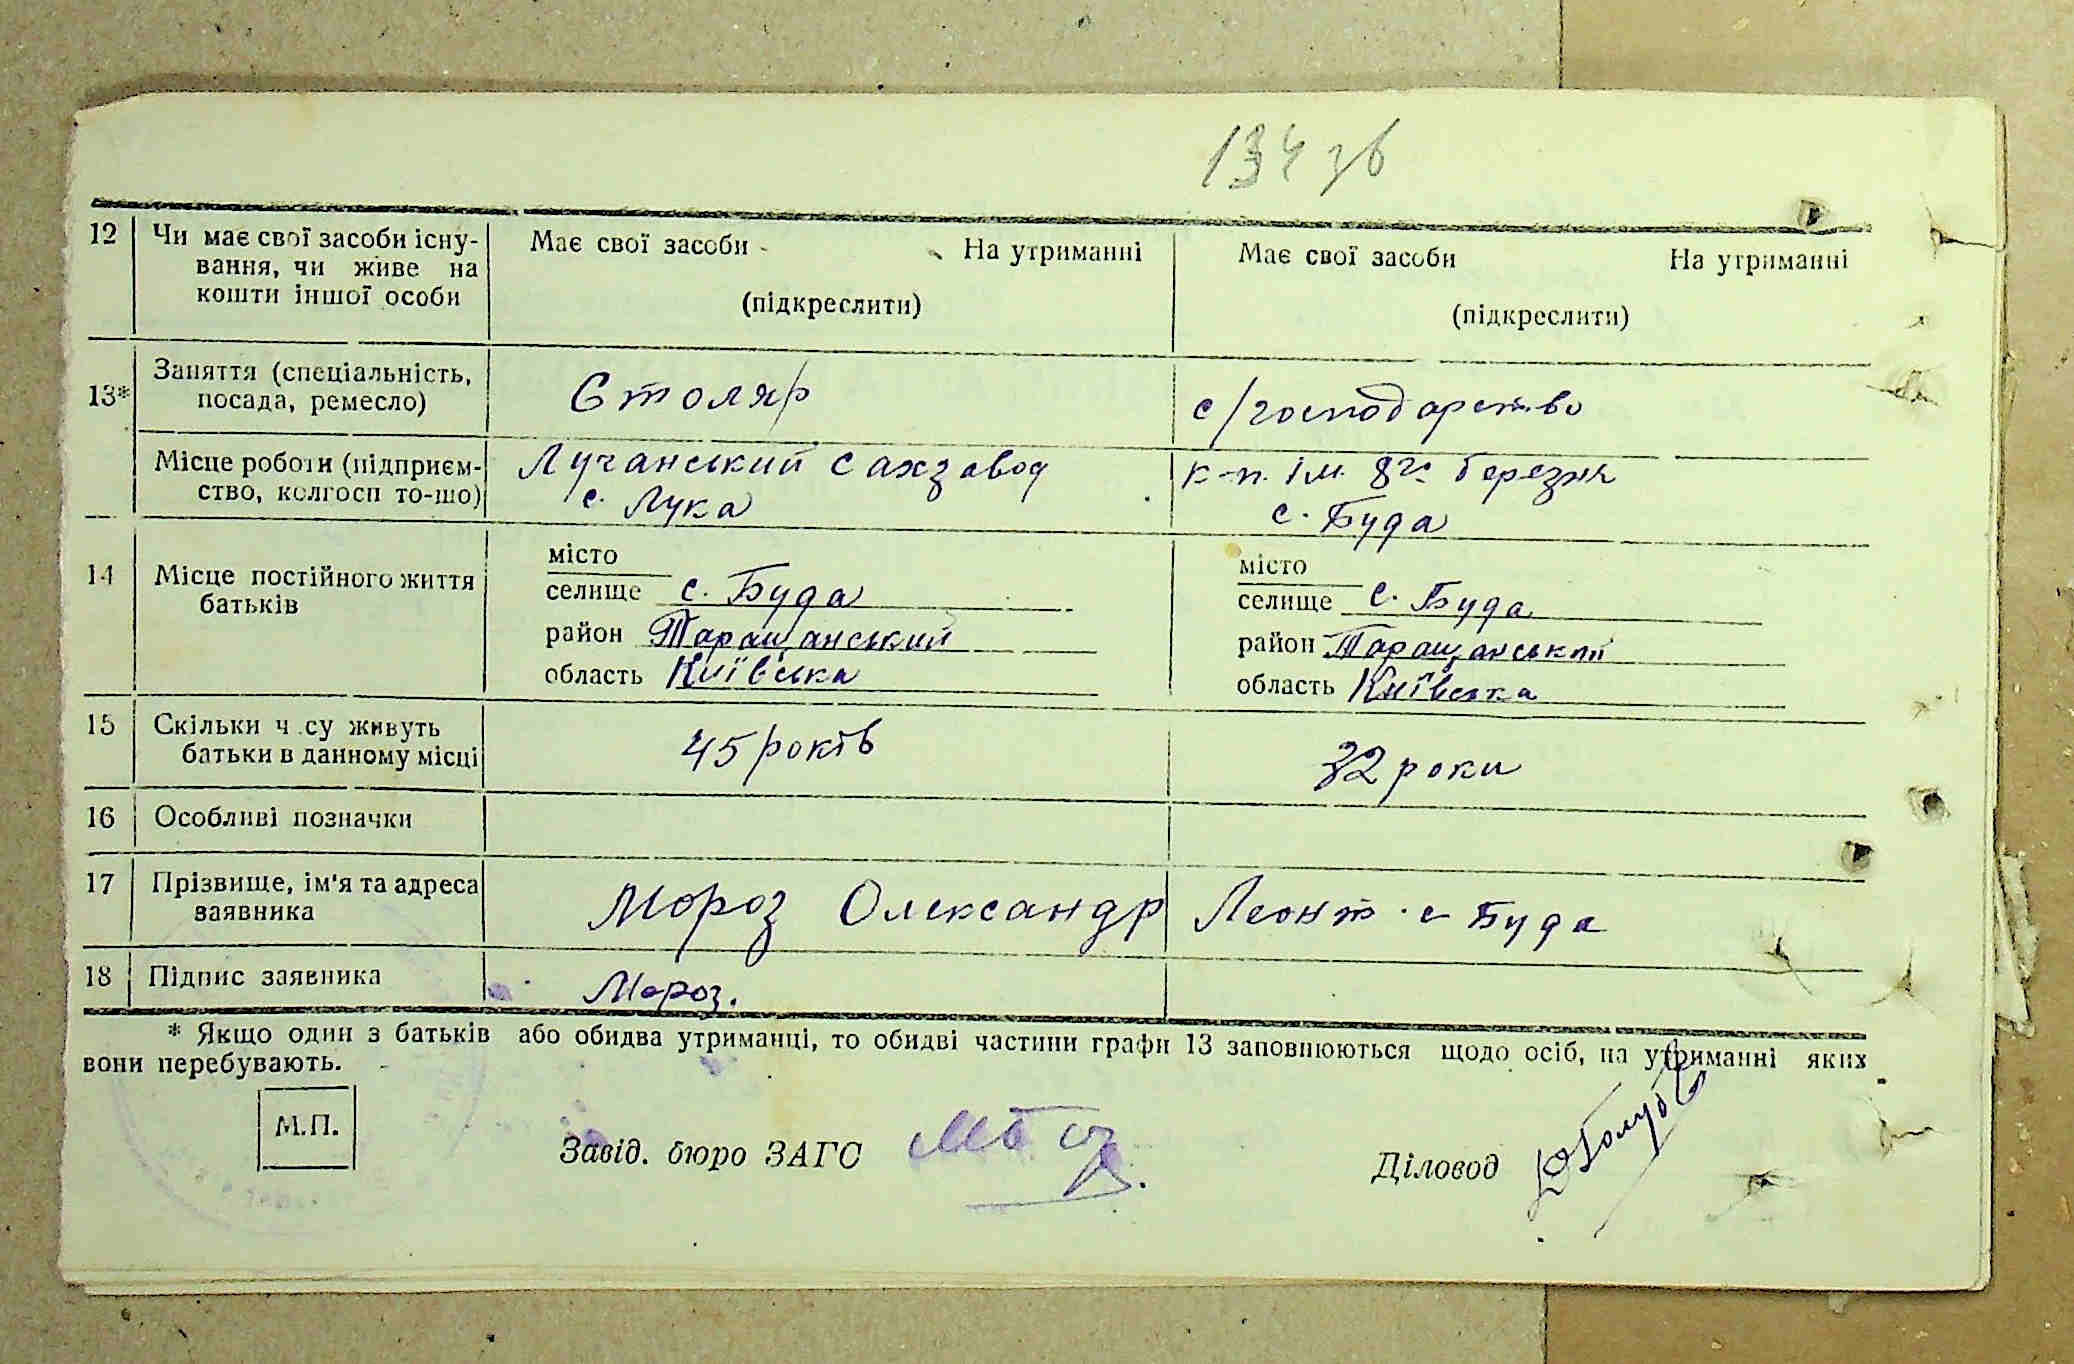 134 зв
12 Чи має свої засоби існу- Має свої засоби На утриманні Має свої засоби На утриманні
вання, чи живе на
кошти іншої особи (підкреслити) (підкреслити)
13* Заняття (спеціальність, Столяр с/господарство
посада, ремесло)
Місце роботи (підприєм- Лучанський сахзавод к-п. ім. 8го березня
ство, колгосп то-що) с. Лука с. Буда
14 Місце постійного життя місто місто
батьків селище с. Буда селище с. Буда
район Таращанський район Таращанський
область Київська область Київська
15 Скільки ч су живуть 45 років 32 роки
батьки в данному місці
16 Особливі позначки
17 Прізвище, ім'я та адреса Мороз Олександр Леонт. с Буда
заявника
18 Підпис заявника Мороз.
* Якщо один з батьків або обидва утриманці, то обидві частини графи 13 заповнюються щодо осіб, на утриманні яких
вони перебувають.
М.П.
Завід. бюро ЗАГС Діловод